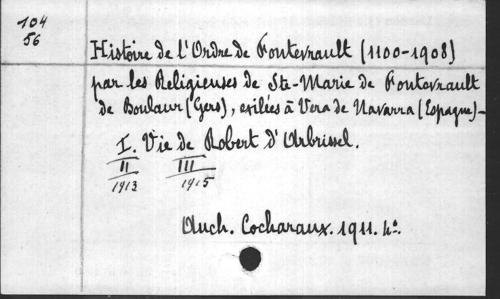 104
56
Histoire de l'Ordre de Fontevrault (1100-1908)
par les Religieuses de Ste-Marie de Fontevrault
de Boulaur (Gers), exilées à Vera de Navarra (Espagne)-
I. Vie de Robert d'Arbrissel.
II III
1913 1915
Auch. Cocharaux. 1911. 4º.